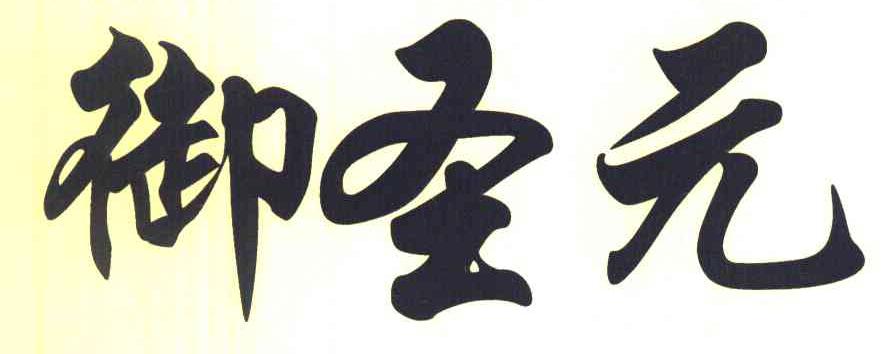 御圣元